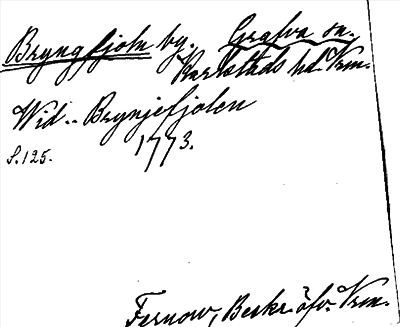 Bryngfjoln by. Grafva sn.
Karlstads hd. Vrm.
Wid .. Brynjefjolen
1773.
S. 125.
Fernow, Beskr. öfv. Vrm.